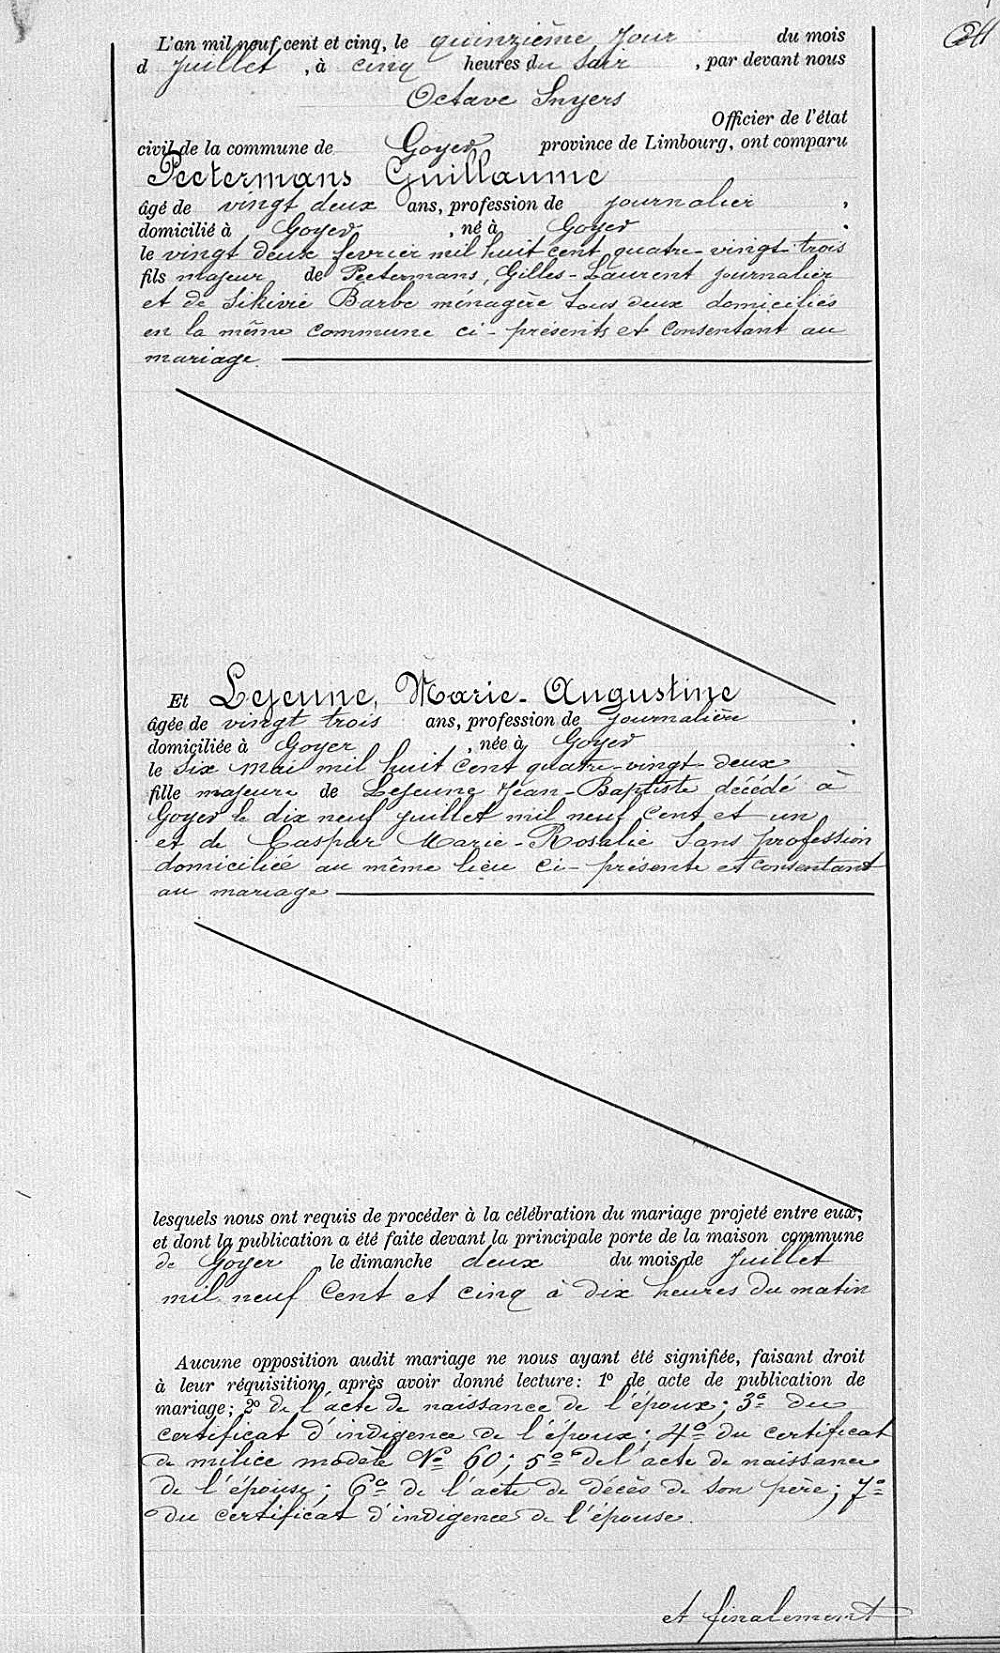 L'an mil neuf cent et cinq, le quinzième jour du mois
d Juillet, à cinq heures du soir, par devant nous
Octave Snyers
Officier de l'état
civil de la commune de Goyer province de Limbourg, ont comparu
Peetermans Guillaume
âgé de vingt deux ans, profession de journalier,
domicilié à Goyer, né à Goyer.
le vingt deux fevrier mil huit cent quatre-vingt-trois
fils majeur de Peetermans, Gilles-Laurent journalier
et de Sikivie Barbe ménagère tous deux domiciliés
en la même commune ci-présents et consentant au
mariage.
Et Lejeune, Marie-Augustine
âgée de vingt trois ans, profession de journalière.
domiciliée à Goyer, née à Goyer.
le six mai mil huit cent quatre-vingt-deux
fille majeure de Lejeune Jean-Baptiste décédé à
Goyer le dix neuf juillet mil neuf cent et un
et de Gaspar Marie-Rosalie sans profession
domiciliée au même lieu ci-présente et consentant
au mariage
lesquels nous ont requis de procéder à la célébration du mariage projeté entre eux,
et dont la publication a été faite devant la principale porte de la maison commune
de Goyer, le dimanche deux du mois de Juillet
mil neuf cent et cinq à dix heures du matin
Aucune opposition audit mariage ne nous ayant été signifiée, faisant droit
à leur réquisition, après avoir donné lecture: 1º de acte de publication de
mariage; 2º de l'acte de naissance de l'époux; 3º du
certificat d'indigence de l'époux; 4º du certificat
de milice modèle Nº 60; 5º de l'acte de naissance
de l'épouse; 6º de l'acte de décès de son père; 7º
du certificat d'indigence de l'épouse.
et finalement